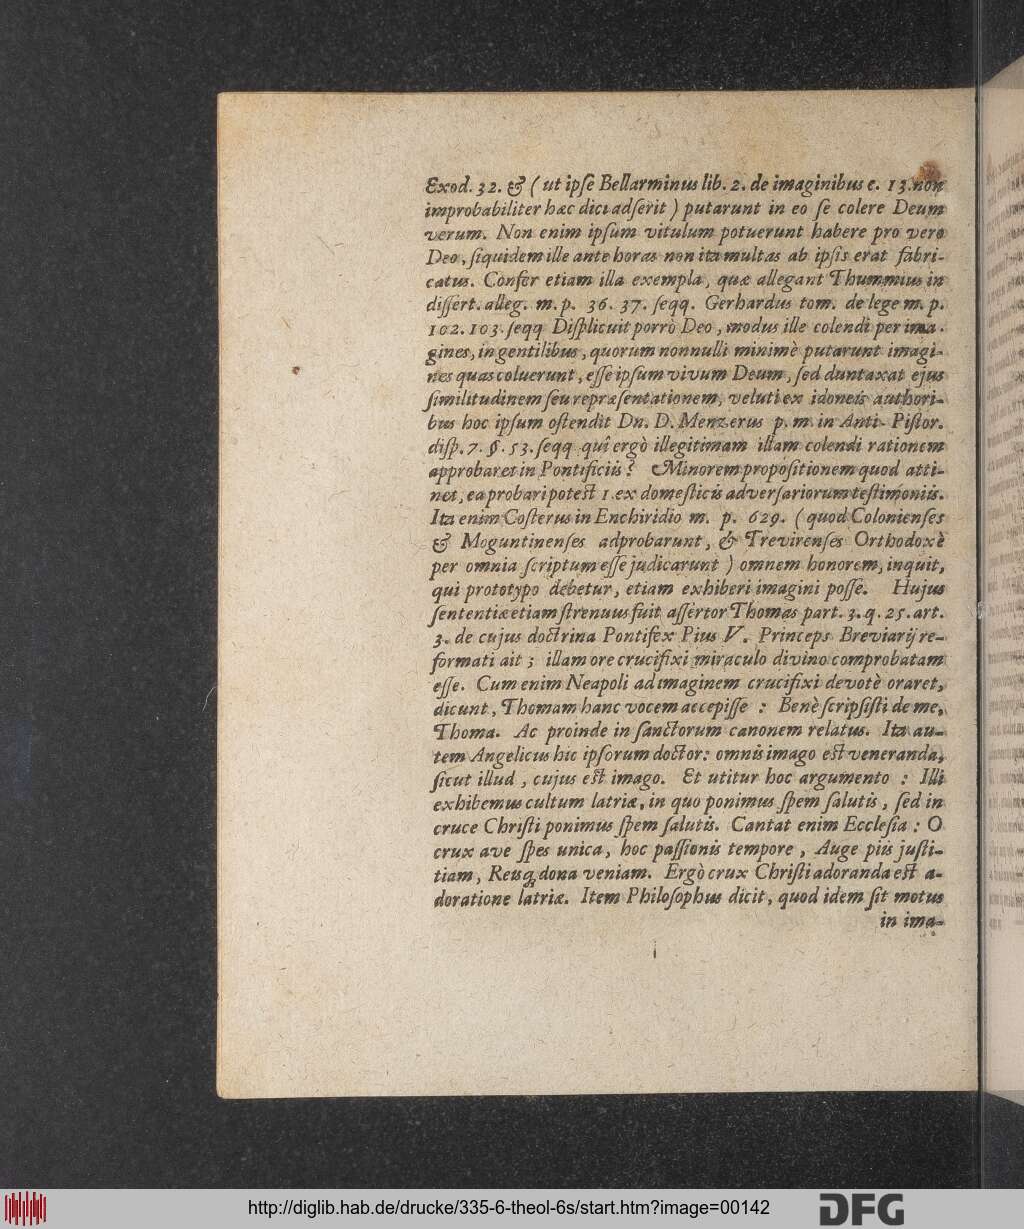 Exod. 32. & ( ut ipse Bellarminus lib. 2. de imaginibus c. 13. non
improbabiliter hæc dici adserit ) putarunt in eo se colere Deum
verum. Non enim ipsum vitulum potuerunt habere pro vero
Deo, siquidem ille ante horas non ita multas ab ipsis erat fabri-
catus. Confer etiam illa exempla, quæ allegant Thummius in
dissert. alleg. m. p. 36. 37. seqq. Gerhardus tom. de lege m. p.
102. 103. seqq Displicuit porrò Deo, modus ille colendi per ima-
gines, in gentilibus, quorum nonnulli minimè putarunt imagi-
nes quas coluerunt, esse ipsum vivum Deum, sed duntaxat ejus
similitudinem seu repræsentationem, veluti ex idoneis authori-
bus hoc ipsum ostendit Dn. D. Menzerus p. m. in Anti-Pistor.
disp. 7. §. 53. seqq quî ergò illegitimam illam colendi rationem
approbaret in Pontificiis? Minorem propositionem quod atti-
net, ea probari potest 1. ex domesticis adversariorum testimoniis.
Ita enim Costerus in Enchiridio m. p. 629. ( quod Colonienses
& Moguntinenses adprobarunt, & Trevirenses Orthodoxè
per omnia scriptum esse judicarunt ) omnem honorem, inquit,
qui prototypo debetur, etiam exhiberi imagini posse. Hujus
sententiæ etiam strenuus fuit assertor Thomas part. 3. q. 25. art.
3. de cujus doctrina Pontifex Pius V. Princeps Breviarij re-
formati ait; illam ore crucifixi miraculo divino comprobatam
esse. Cum enim Neapoli ad imaginem crucifixi devotè oraret,
dicunt, Thomam hanc vocem accepisse : Benè scripsisti de me,
Thoma. Ac proinde in sanctorum canonem relatus. Ita au-
tem Angelicus hic ipsorum doctor: omnis imago est veneranda,
sicut illud, cujus est imago. Et utitur hoc argumento : Illi
exhibemus cultum latriæ, in quo ponimus spem salutis, sed in
cruce Christi ponimus spem salutis. Cantat enim Ecclesia : O
crux ave spes unica, hoc passionis tempore, Auge piis justi-
tiam, Reisq; dona veniam. Ergò crux Christi adoranda est a-
doratione latriæ. Item Philosophus dicit, quod idem sit motus
in ima-
http://diglib.hab.de/drucke/335-6-theol-6s/start.htm?image=00142
DFG